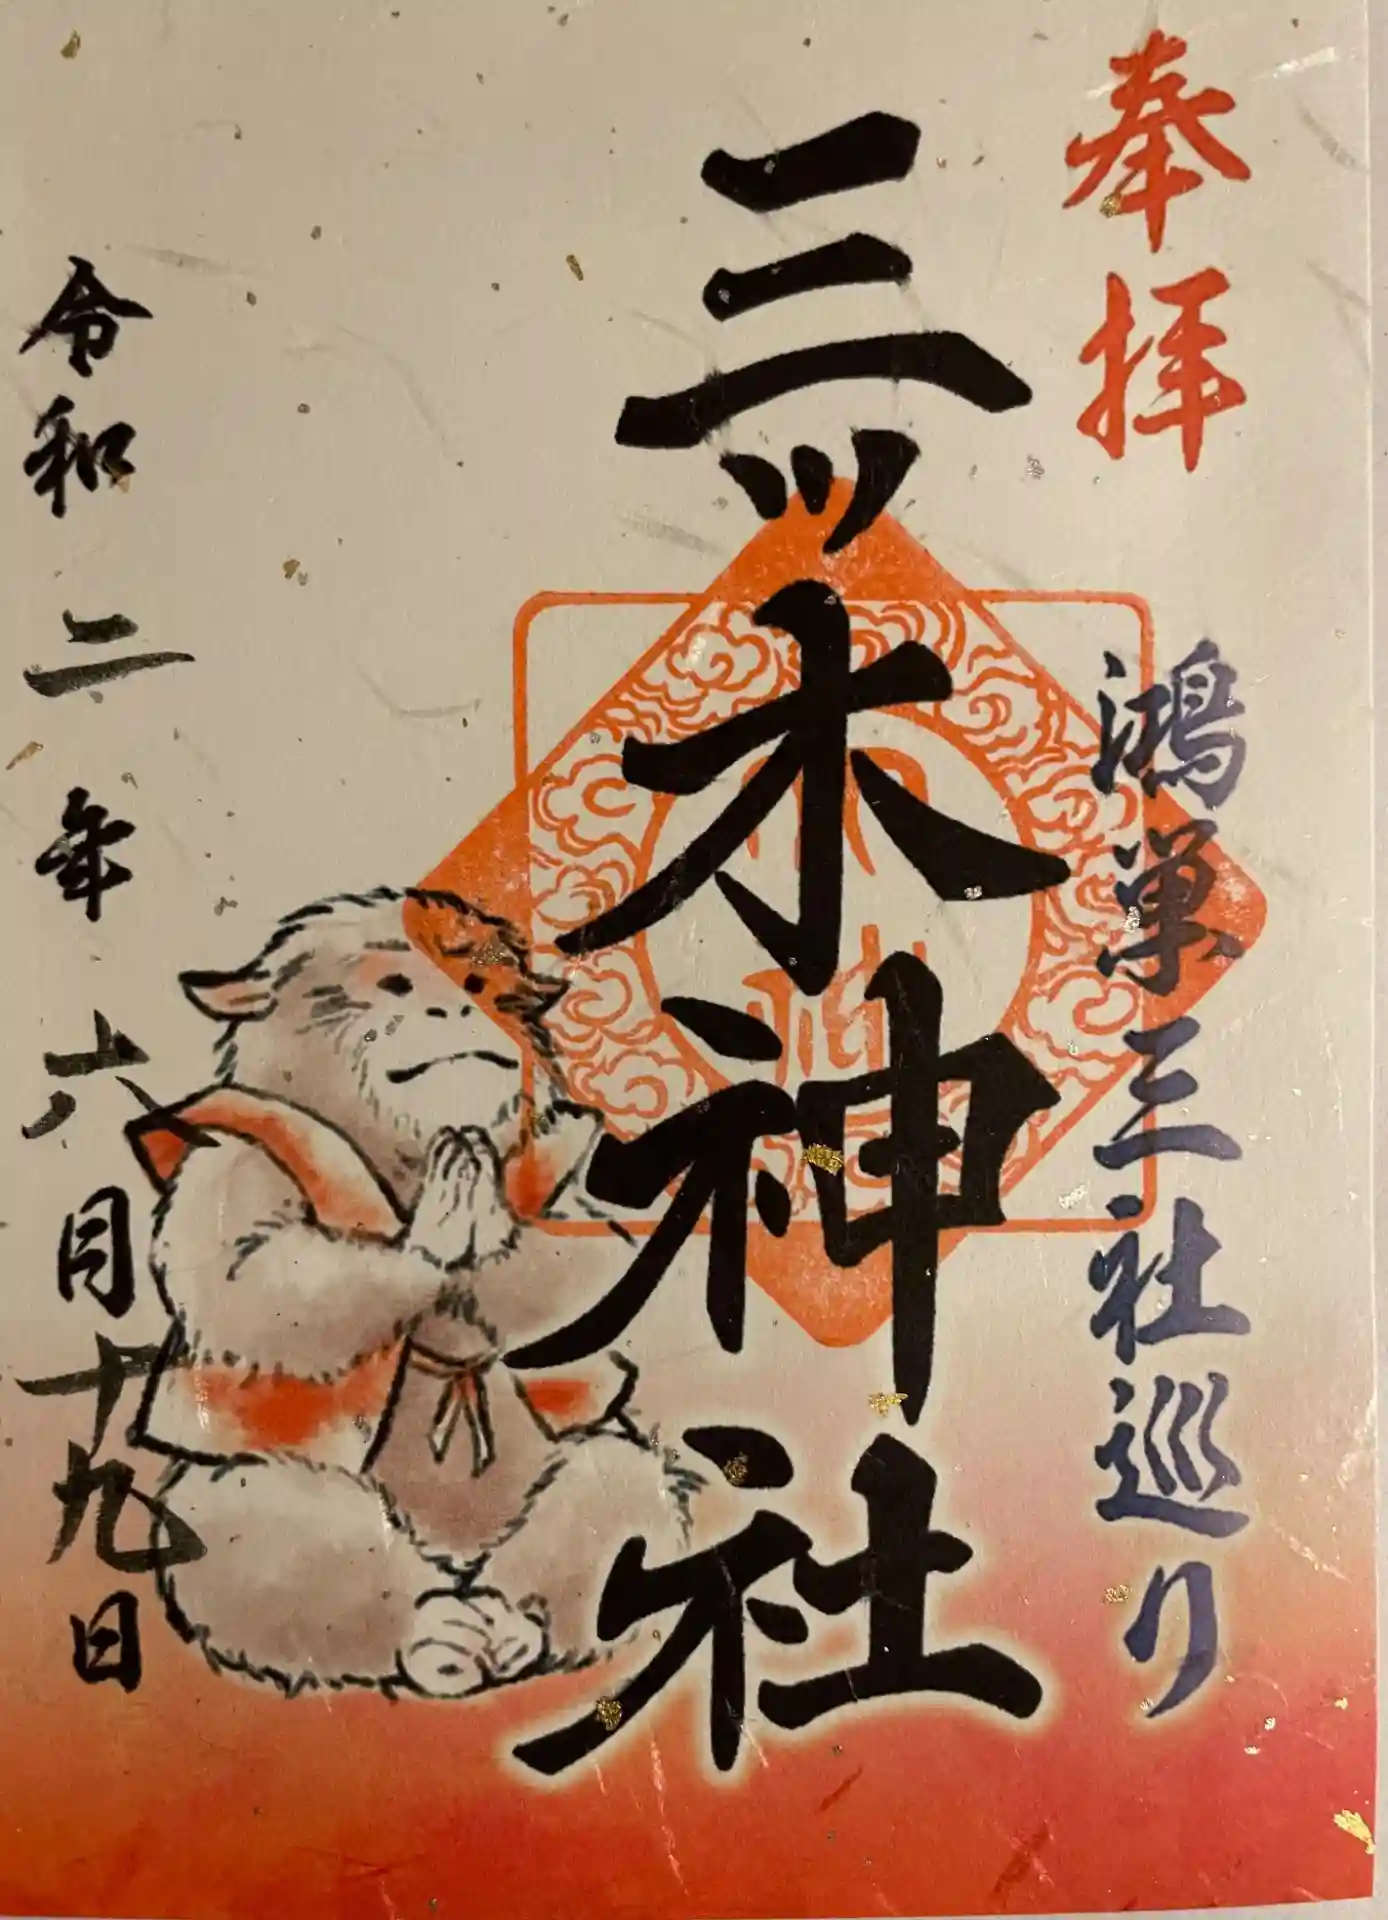 奉拝
鴻巣三社巡り
三ツ木神社
令和二年六月十九日